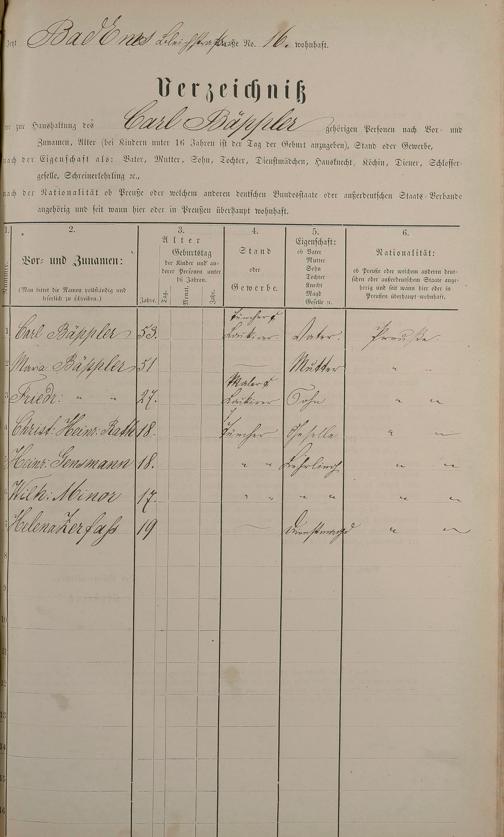 Jetzt Bad Ems Bleichstraße Straße No. 16. wohnhaft.
Verzeichniß
der zur Haushaltung des Carl Bäppler gehörigen Personen nach Vor- und
Zunamen, Alter (bei Kindern unter 16 Jahren ist der Tag der Geburt anzugeben), Stand oder Gewerbe,
nach der Eigenschaft als: Vater, Mutter, Sohn, Tochter, Dienstmädchen, Hausknecht, Köchin, Diener, Schlosser-
geselle, Schreinerlehrling ꝛc.,
nach der Nationalität ob Preuße oder welchem anderen deutschen Bundesstaate oder außerdeutschen Staats-Verbande
angehörig und seit wann hier oder in Preußen überhaupt wohnhaft.
1.
Nummer.
2.
Vor- und Zunamen:
(Man bittet die Namen vollständig und
leserlich zu schreiben.)
3.
Alter
Geburtstag
der Kinder und an-
derer Personen unter
16 Jahren.
Jahre.
Tag.
Monat.
Jahr.
4.
Stand
oder
Gewerbe.
5.
Eigenschaft:
ob Vater
Mutter
Sohn
Tochter
Knecht
Magd
Geselle ꝛc.
6.
Nationalität:
ob Preuße oder welchem andern deut-
schen oder außerdeutschen Staate ange-
hörig und seit wann hier oder in
Preußen überhaupt wohnhaft.
1 Carl Bäppler 53. Tüncher & Lakirer Vater. Preuße
2 Bäppler 51 Mutter " "
3 Friedr: " " 27. Maler & Lakirer Sohn " "
4 Christ: Heinr: 18. Tüncher Geselle " "
5 Heinr: Gensmann 18. " " Lehrling " "
6 Wilh: Minor 17. " " " " " "
7 Helena Zerfaß 19 — Dienstmagd " "
8
9
10
11
12
13
14
15
16